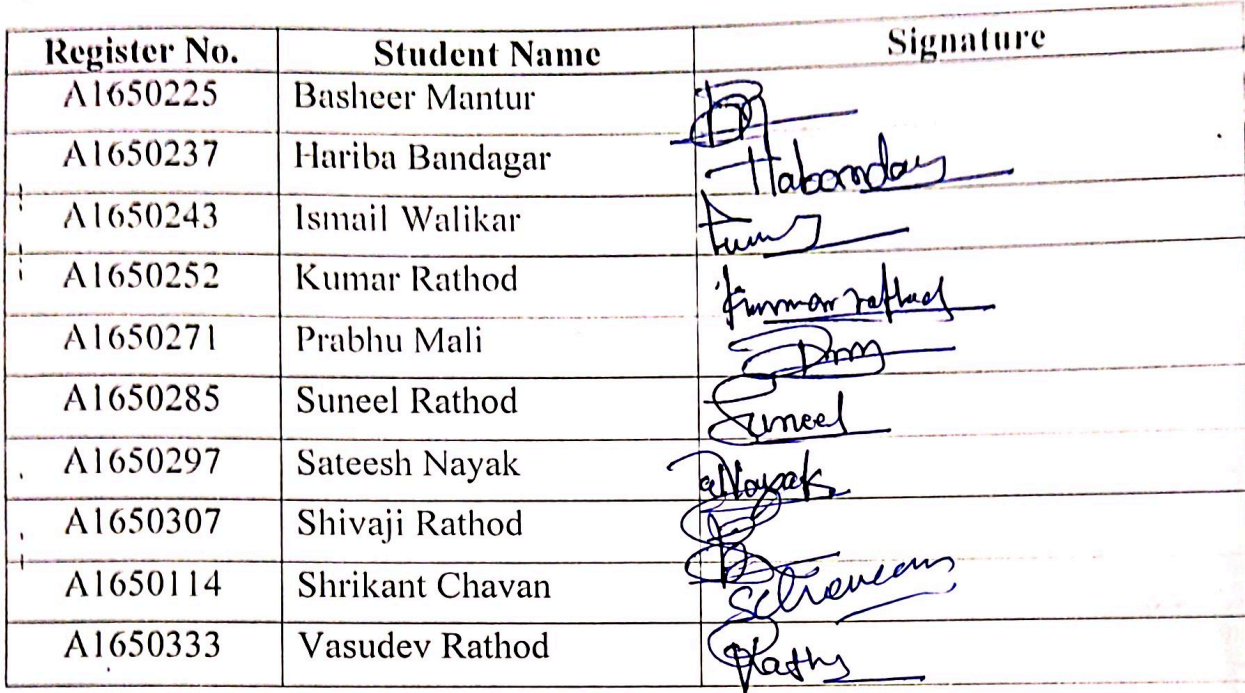 Register No. Student Name Signature
A1650225 Basheer Mantur
A1650237 Hariba Bandagar
A1650243 Ismail Walikar
A1650252 Kumar Rathod Kummar rathod
A1650271 Prabhu Mali
A1650285 Suneel Rathod Suneel
A1650297 Sateesh Nayak Nayak
A1650307 Shivaji Rathod
A1650114 Shrikant Chavan
A1650333 Vasudev Rathod